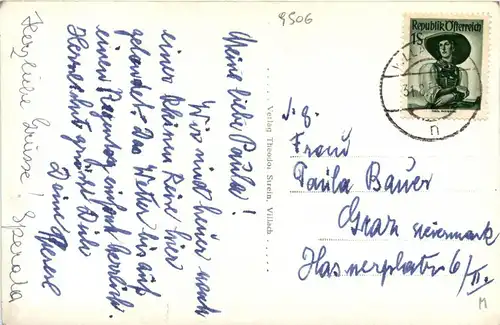 9506
Meine liebe Paula!
Wir sind heuer nach
einer kleinen Reise hier
gelandet. Das Wetter bis auf
einen Regentag einfach herrlich.
Herzlichst grüßt Dich
Deine
Herzliche Grüsse!
Verlag Theodor Strein, Villach
Republik Österreich
1 S
n
Frau
Paula Bauer
Graz Steiermark
Hasnerplatz 6/II.
M